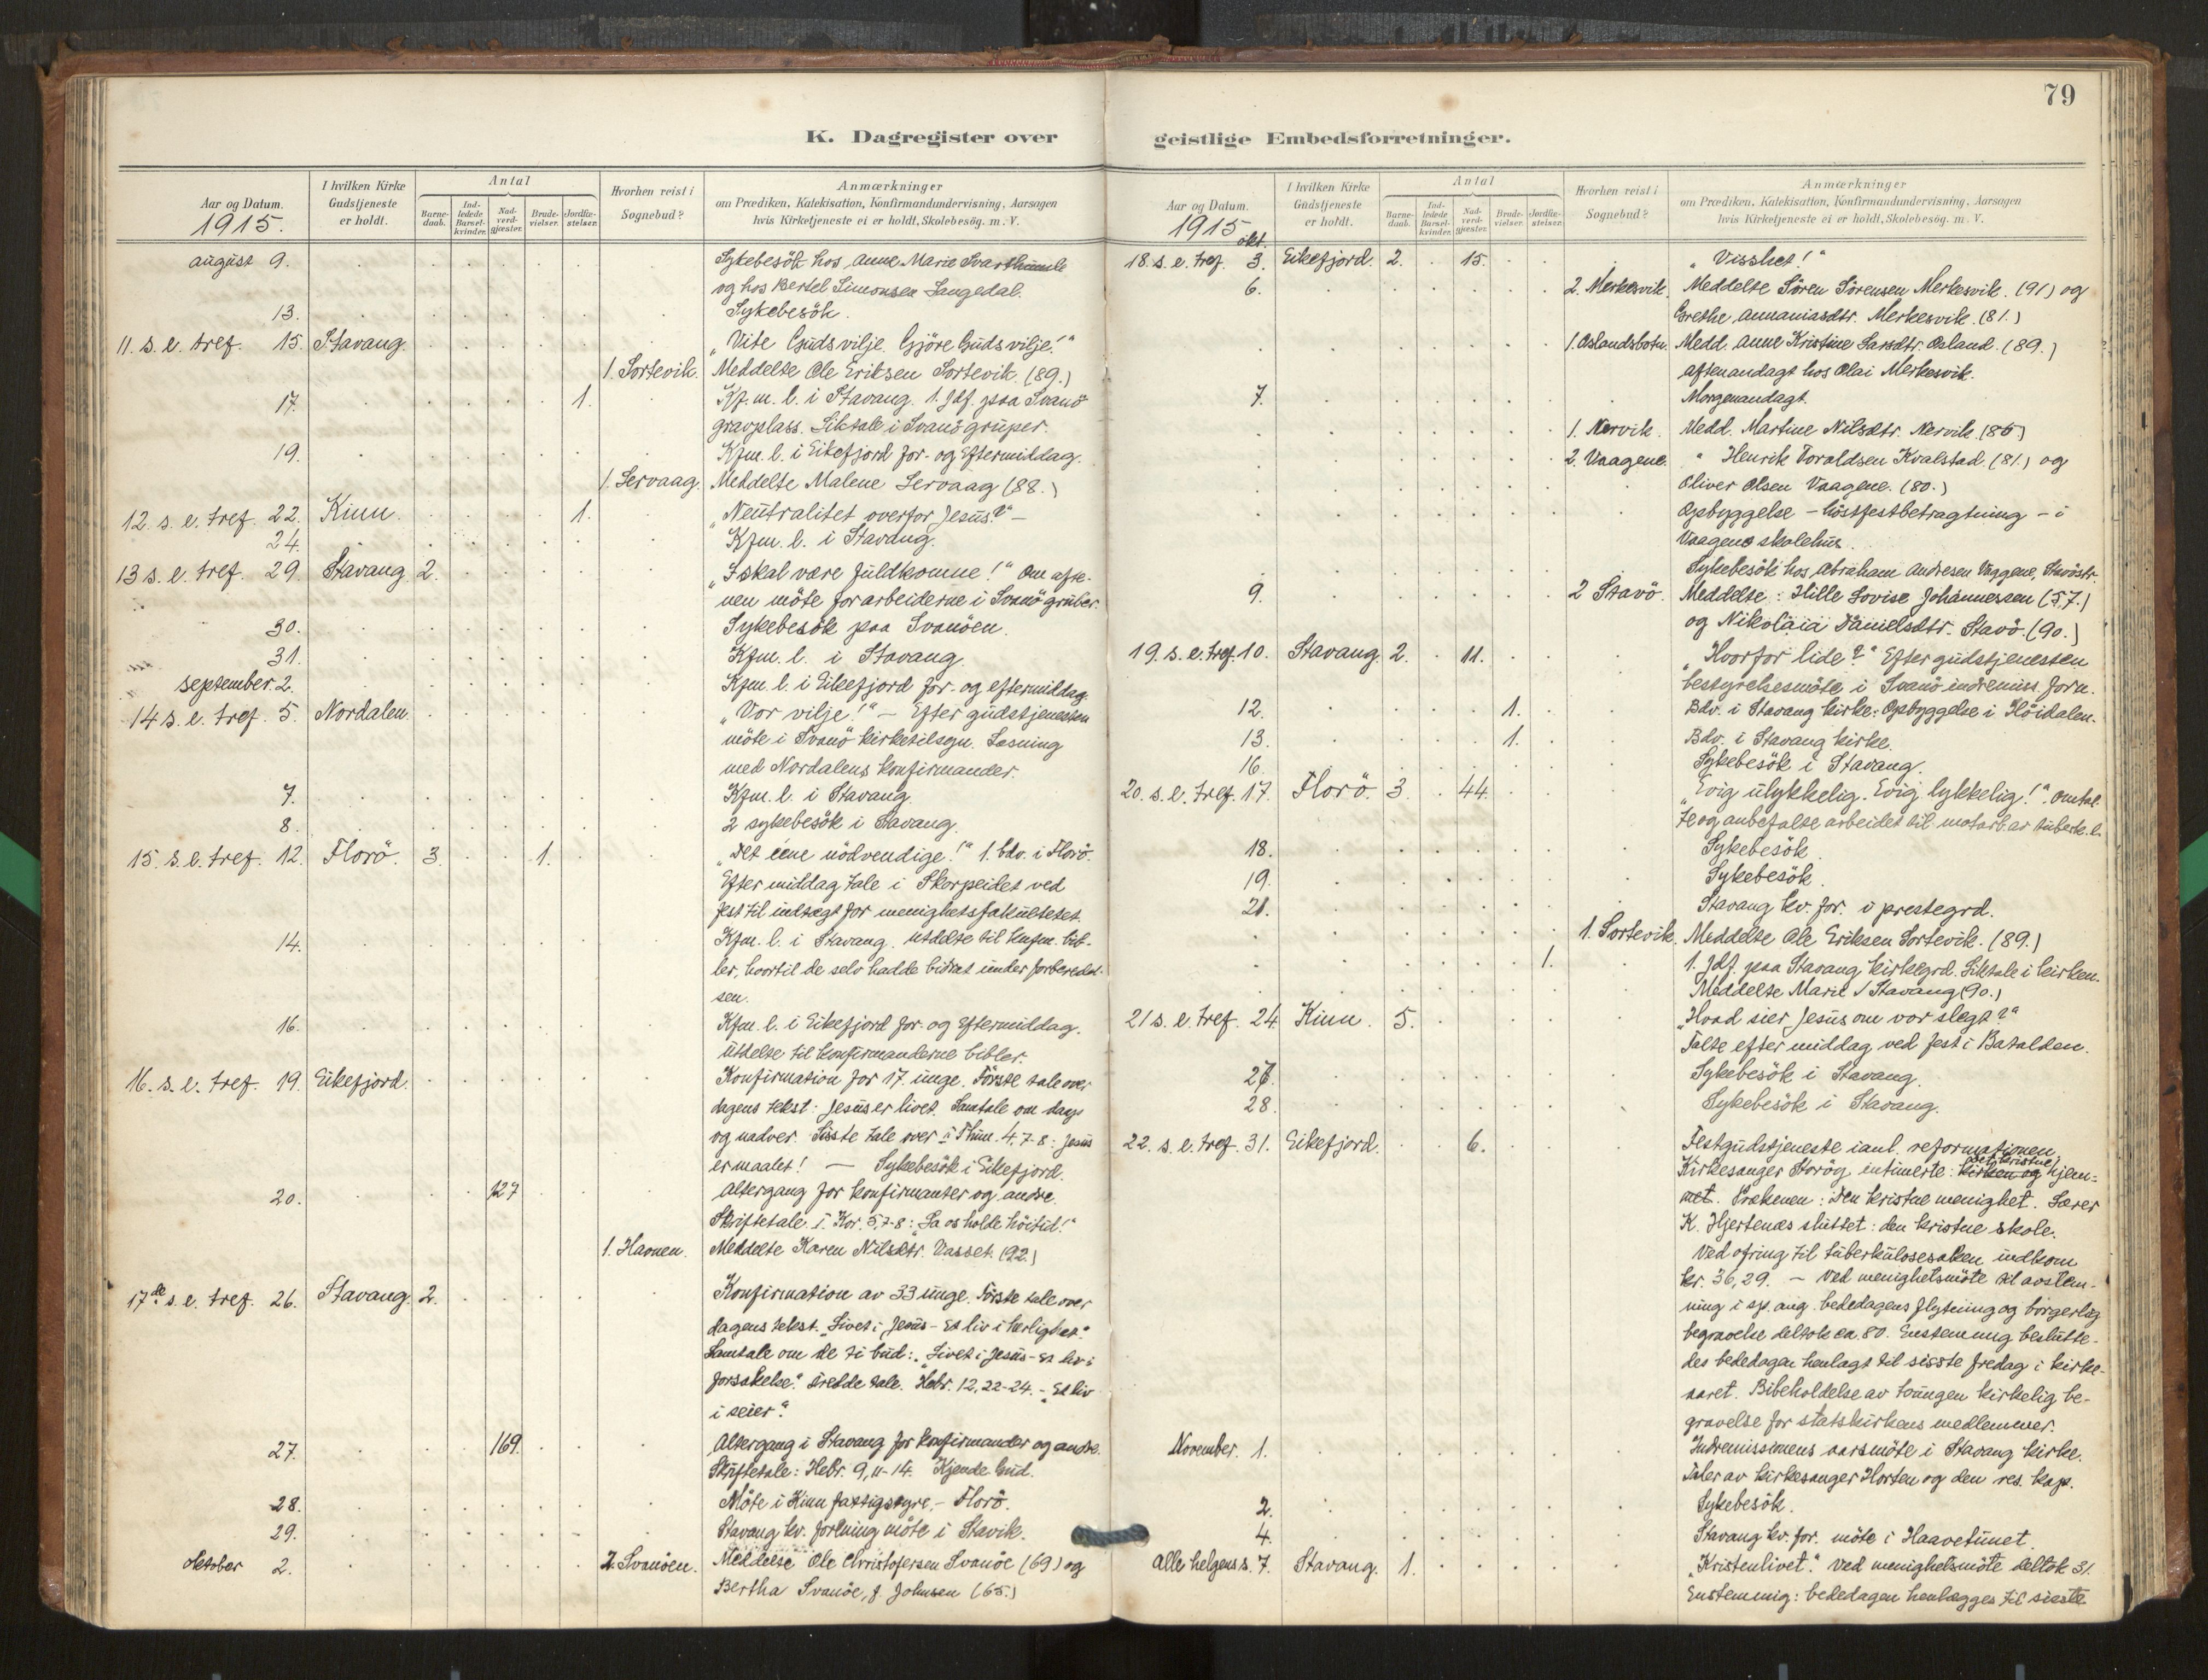 79
K. Dagregister over
Aar og Datum.
1915.
I hvilken Kirke Gudstjeneste er holdt.
Antal
Barne-daab.
Ind-ledede Barsel-kvinder.
Nad-verd-gjæster.
Brude-vielser.
Jordfæ-stelser.
Hvorhen reist i Sognebud?
Anmærkninger
om Prædiken, Katekisation, Konfirmandundervisning, Aarsagen
hvis Kirketjeneste ei er holdt, Skolebesög. m. V.
august 9. Sykebesök hos Anne Marie Svarthumle
og hos Bertel Simonsen Langedal.
13. Sykebesök.
11. s. e. tref. 15. Stavang. „Vite Guds vilje. Gjöre Guds vilje!“
1. Sortevik. Meddelte Ole Eriksen Sortevik. (89.)
17. 1. Kfm. l. i Stavang. 1. Jdf. paa Svanö
gravplass. Liktale i Svanö gruper.
19. Kfm. l. i Eikefjord for- og Eftermiddag.
1. Servaag. Meddelte Malene Servaag (88.)
12. s. e. tref. 22. Kinn. 1. „Neutralitet overfor Jesus?“ –
24. Kfm. l. i Stavang.
13 s. e. tref. 29. Stavang 2. „I skal være fuldkomne!“ Om afte-
nen möte for arbeiderne i Svanö gruber.
30. Sykebesök paa Svanöen.
31. Kfm. l. i Stavang.
september. 2. Kfm. l. i Eikefjord for- og eftermiddag.
14 s. e. tref. 5. Nordalen. „Vor vilje!“ – Efter gudstjenesten
möte i Svanö kirketilsyn. Læsning
med Nordalens konfirmander.
7. Kfm. l. i Stavang.
8. 2 sykebesök i Stavang.
15. s. e. tref. 12. Florö. 3. 1. „Det ene nödvendige!“ 1. bdv. i Florö.
Eftermiddag tale i Skorpeidet ved
fest til indtægt for menighetsfakultetet.
14. Kfm. l. i Stavang. Utdelte til knfm. bib-
ler, hvortil de selv hadde bidrat under forberedel-
sen.
16. Kfm. l. i Eikefjord for- og Eftermiddag.
Uttelse til konfirmanderne bibler.
16. s. e. tref. 19. Eikefjord. Konfirmation for 17 unge. Förste tale over
dagens tekst: Jesus er livet. Samtale om daap
og nadver. Sisste tale over 2 Thim. 4. 7-8: Jesus
er maalet! — Sykebesök i Eikefjord.
20. 127 Altergang for konfirmanter og andre.
Skriftetale. I. Kor. 5, 7-8: „La os holde höitid!“
1. Havnen. Meddelte Karen Nilsdtr. Vasset. (92.)
17de s. e. tref. 26. Stavang. 2. Konfirmation av 33 unge. Förste tale over
dagens tekst. „Livet i Jesus – Et liv i herlighet.“
Samtale om de ti bud: „Livet i Jesus – Et liv i
forsakelse.“ Tredde tale. Hebr. 12, 22-24. – „Et liv
i seier.“
27. 169. Altergang i Stavang for konfirmander og andre.
Skriftetale: Hebr. 9, 11-14. Kjende Gud.
28. Möte i Kinn fattigstyre. – Florö.
29. Stavang kv. forening möte i Stavik.
oktober 2. 2. Svanöen. Meddelte Ole Christofersen Svanöe (69) og
Bertha Svanöe, f. Johnsen (65.)
geistlige Embedsforretninger.
Aar og Datum.
1915 okt.
I hvilken Kirke Gudstjeneste er holdt.
Antal
Barne-daab.
Ind-ledede Barsel-kvinder.
Nad-verd-gjæster.
Brude-vielser.
Jordfæ-stelser.
Hvorhen reist i Sognebud?
Anmærkninger
om Prædiken, Katekisation, Konfirmandundervisning, Aarsagen
hvis Kirketjeneste ei er holdt, Skolebesög. m. V.
18. s. e. tref. 3. Eikefjord. 2. 15. „Visshet!“
6. 2. Merkesvik. Meddelte Sören Sörensen Merkesvik. (91) og
Grethe Annaniasdtr. Merkesvik. (81.)
1. Oslandsbotn. Medd. Anne Kristine Larsdtr. Osland. (89.)
aftenandagt hos Olai Merkesvik.
7. Morgenandagt.
1. Nervik. Medd. Martine Nilsdtr. Nervik. (85)
2. Vaagene. „ Henrik Toraldsen Kvalstad. (81.) og
Oliver Olsen Vaagene. (80.)
Opbyggelse – höstfestbetragtning – i
Vaagene skolehus.
Sykebesök hos Abraham Andresen Vaagene, Stavöstr.
9. 2 Stavö. Meddelte: Hille Lovise Johannessen (57.)
og Nikolaia Danielsdtr. Stavö. (90.)
19. s. e. tref. 10. Stavang. 2. 11. „Hvorfor lide?“ Efter gudstjenesten
bestyrelsesmöte i Svanö indremiss. forn.
12. 1. Bdv. i Stavang kirke. Opbyggelse i Höidalen.
13. 1. Bdv. i Stavang kirke.
16. Sykebesök i Stavang.
20. s. e. tref. 17. Florö. 3. 44. „Evig ulykkelig. Evig lykkelig!“. Omtal-
te og anbefalte arbeidet til motarb. av tuberk. l.
18. Sykebesök.
19. Sykebesök.
21. Stavang kv. for. i prestegrd.
1. Sortevik. Meddelte Ole Eriksen Sortevik. (89.)
1. 1. Jdf. paa Stavang kirkegrd. Liktale i kirken.
Meddelte Marie Stavang (90.)
21 s. e. tref. 24 Kinn. 5. „Hvad sier Jesus om vor slegt?“
Talte eftermiddag ved fest i Batalden.
26. Sykebesök i Stavang.
28. Sykebesök i Stavang.
22. s. e. tref. 31. Eikefjord. 6. Festgudstjeneste ianl. reformationen.
Kirkesanger Storög intimerte: kirken og det kristne hjem-
met. Prækenen: Den kristne menighet. Lærer
K. Hjertenæs sluttet: den kristne skole.
Ved ofring til tuberkulosesaken indkom
kr. 36,29. – Ved menighetsmöte til avstem-
ning i sp. ang. bededagens flytning og borgerlig
begravelse deltok ca. 80. Enstemmig beslutte-
des bededagen henlagt til sisste fredag i kirke-
aaret. Bibeholdelse av tvungen kirkelig be-
gravelse for statskirkens medlemmer.
November. 1. Indremissionens aarsmöte i Stavang kirke.
Taler av kirkesanger Horten og den res. kap.
2. Sykebesök.
4. Stavang kv. for. möte i Haavetunet.
Alle helgens s. 7. Stavang. 1. „Kristenlivet.“ Ved menighetsmöte deltok 31.
Enstemmig: bededagen henlægges til sisste